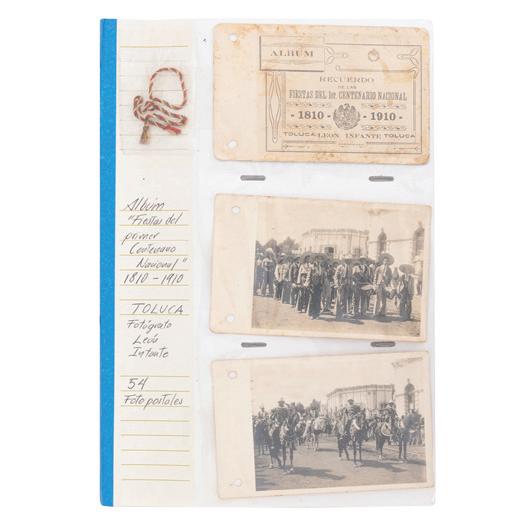 ALBUM
RECUERDO
DE LAS
FIESTAS DEL 1er. CENTENARIO NACIONAL
- 1810 - - 1910 -
TOLUCA LEON INFANTE TOLUCA
Albúm
"Fiestas del
primer
Centenario
Nacional"
1810 - 1910
TOLUCA
Fotógrafo
León
Infante
54
Fotopostales